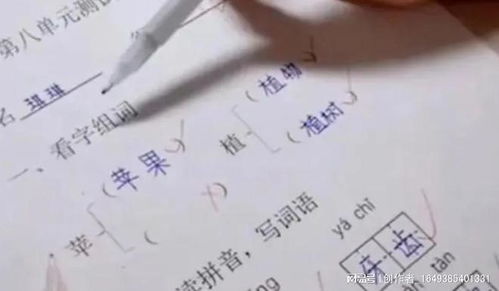 第八单元测
名 琪琪
一、看字组词
苹 (苹果) ( )
植 (植物) (植树)
读拼音，写词语
yá chǐ
牙齿
搜狐号@创作者_1649385401331